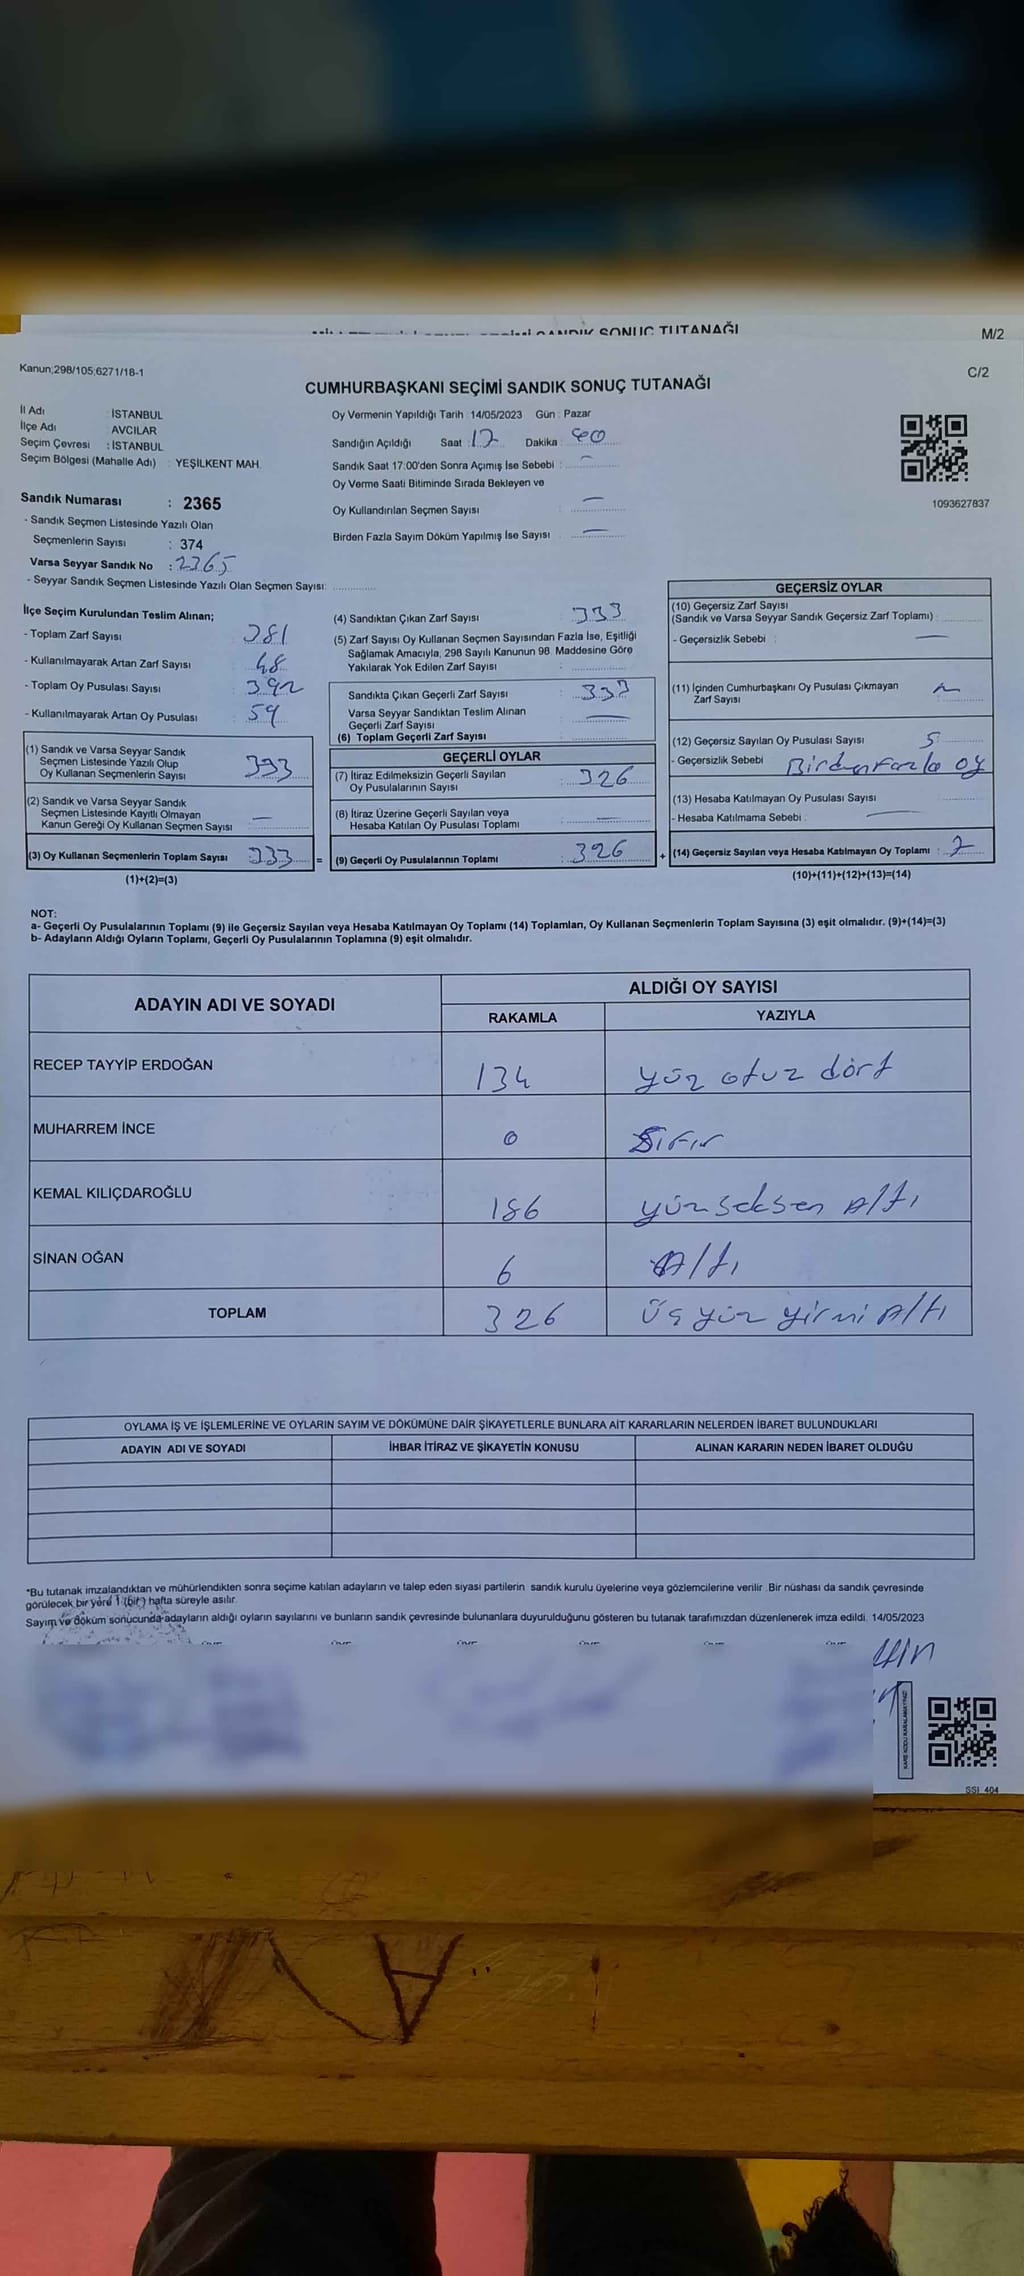 SANDIK SONUÇ TUTANAĞI
M/2
Kanun;298/105;6271/18-1
C/2
CUMHURBAŞKANI SEÇİMİ SANDIK SONUÇ TUTANAĞI
İl Adı : İSTANBUL
İlçe Adı AVCILAR
Seçim Çevresi : İSTANBUL
Seçim Bölgesi (Mahalle Adı) : YEŞİLKENT MAH.
Oy Vermenin Yapıldığı Tarih : 14/05/2023 Gün : Pazar
Sandığın Açıldığı Saat : 17 Dakika : 40
Sandık Saat 17:00'den Sonra Açımış İse Sebebi : —
Oy Verme Saati Bitiminde Sırada Bekleyen ve
Oy Kullandırılan Seçmen Sayısı : —
Birden Fazla Sayım Döküm Yapılmış İse Sayısı : —
1093627837
Sandık Numarası : 2365
- Sandık Seçmen Listesinde Yazılı Olan
Seçmenlerin Sayısı : 374
Varsa Seyyar Sandık No : 2365
- Seyyar Sandık Seçmen Listesinde Yazılı Olan Seçmen Sayısı:
İlçe Seçim Kurulundan Teslim Alınan;
- Toplam Zarf Sayısı : 381
- Kullanılmayarak Artan Zarf Sayısı : 48
- Toplam Oy Pusulası Sayısı : 392
- Kullanılmayarak Artan Oy Pusulası : 59
(1) Sandık ve Varsa Seyyar Sandık
Seçmen Listesinde Yazılı Olup
Oy Kullanan Seçmenlerin Sayısı : 333
(2) Sandık ve Varsa Seyyar Sandık
Seçmen Listesinde Kayıtlı Olmayan
Kanun Gereği Oy Kullanan Seçmen Sayısı : —
(3) Oy Kullanan Seçmenlerin Toplam Sayısı : 333 =
(1)+(2)=(3)
(4) Sandıktan Çıkan Zarf Sayısı : 333
(5) Zarf Sayısı Oy Kullanan Seçmen Sayısından Fazla İse, Eşitliği
Sağlamak Amacıyla, 298 Sayılı Kanunun 98. Maddesine Göre
Yakılarak Yok Edilen Zarf Sayısı :
Sandıkta Çıkan Geçerli Zarf Sayısı : 333
Varsa Seyyar Sandıktan Teslim Alınan
Geçerli Zarf Sayısı : —
(6) Toplam Geçerli Zarf Sayısı :
GEÇERLİ OYLAR
(7) İtiraz Edilmeksizin Geçerli Sayılan
Oy Pusulalarının Sayısı : 326
(8) İtiraz Üzerine Geçerli Sayılan veya
Hesaba Katılan Oy Pusulası Toplamı : —
(9) Geçerli Oy Pusulalarının Toplamı : 326 +
GEÇERSİZ OYLAR
(10) Geçersiz Zarf Sayısı
(Sandık ve Varsa Seyyar Sandık Geçersiz Zarf Toplamı) :
- Geçersizlik Sebebi : —
(11) İçinden Cumhurbaşkanı Oy Pusulası Çıkmayan
Zarf Sayısı : 2
(12) Geçersiz Sayılan Oy Pusulası Sayısı : 5
- Geçersizlik Sebebi : Birden Fazla oy
(13) Hesaba Katılmayan Oy Pusulası Sayısı :
- Hesaba Katılmama Sebebi : —
(14) Geçersiz Sayılan veya Hesaba Katılmayan Oy Toplamı : 7
(10)+(11)+(12)+(13)=(14)
NOT:
a- Geçerli Oy Pusulalarının Toplamı (9) ile Geçersiz Sayılan veya Hesaba Katılmayan Oy Toplamı (14) Toplamları, Oy Kullanan Seçmenlerin Toplam Sayısına (3) eşit olmalıdır. (9)+(14)=(3)
b- Adayların Aldığı Oyların Toplamı, Geçerli Oy Pusulalarının Toplamına (9) eşit olmalıdır.
ADAYIN ADI VE SOYADI ALDIĞI OY SAYISI
RAKAMLA YAZIYLA
RECEP TAYYİP ERDOĞAN 134 yüz otuz dört
MUHARREM İNCE 0 Sıfır
KEMAL KILIÇDAROĞLU 186 yüz seksen Altı
SİNAN OĞAN 6 Altı
TOPLAM 326 Üç yüz yirmi Altı
OYLAMA İŞ VE İŞLEMLERİNE VE OYLARIN SAYIM VE DÖKÜMÜNE DAİR ŞİKAYETLERLE BUNLARA AİT KARARLARIN NELERDEN İBARET BULUNDUKLARI
ADAYIN ADI VE SOYADI İHBAR İTİRAZ VE ŞİKAYETİN KONUSU ALINAN KARARIN NEDEN İBARET OLDUĞU
*Bu tutanak imzalandıktan ve mühürlendikten sonra seçime katılan adayların ve talep eden siyasi partilerin sandık kurulu üyelerine veya gözlemcilerine verilir. Bir nüshası da sandık çevresinde
görülecek bir yere 1 (bir) hafta süreyle asılır.
Sayım ve döküm sonucunda adayların aldığı oyların sayılarını ve bunların sandık çevresinde bulunanlara duyurulduğunu gösteren bu tutanak tarafımızdan düzenlenerek imza edildi. 14/05/2023
KARE KODU KARALAMAYINIZ!
SSI_404